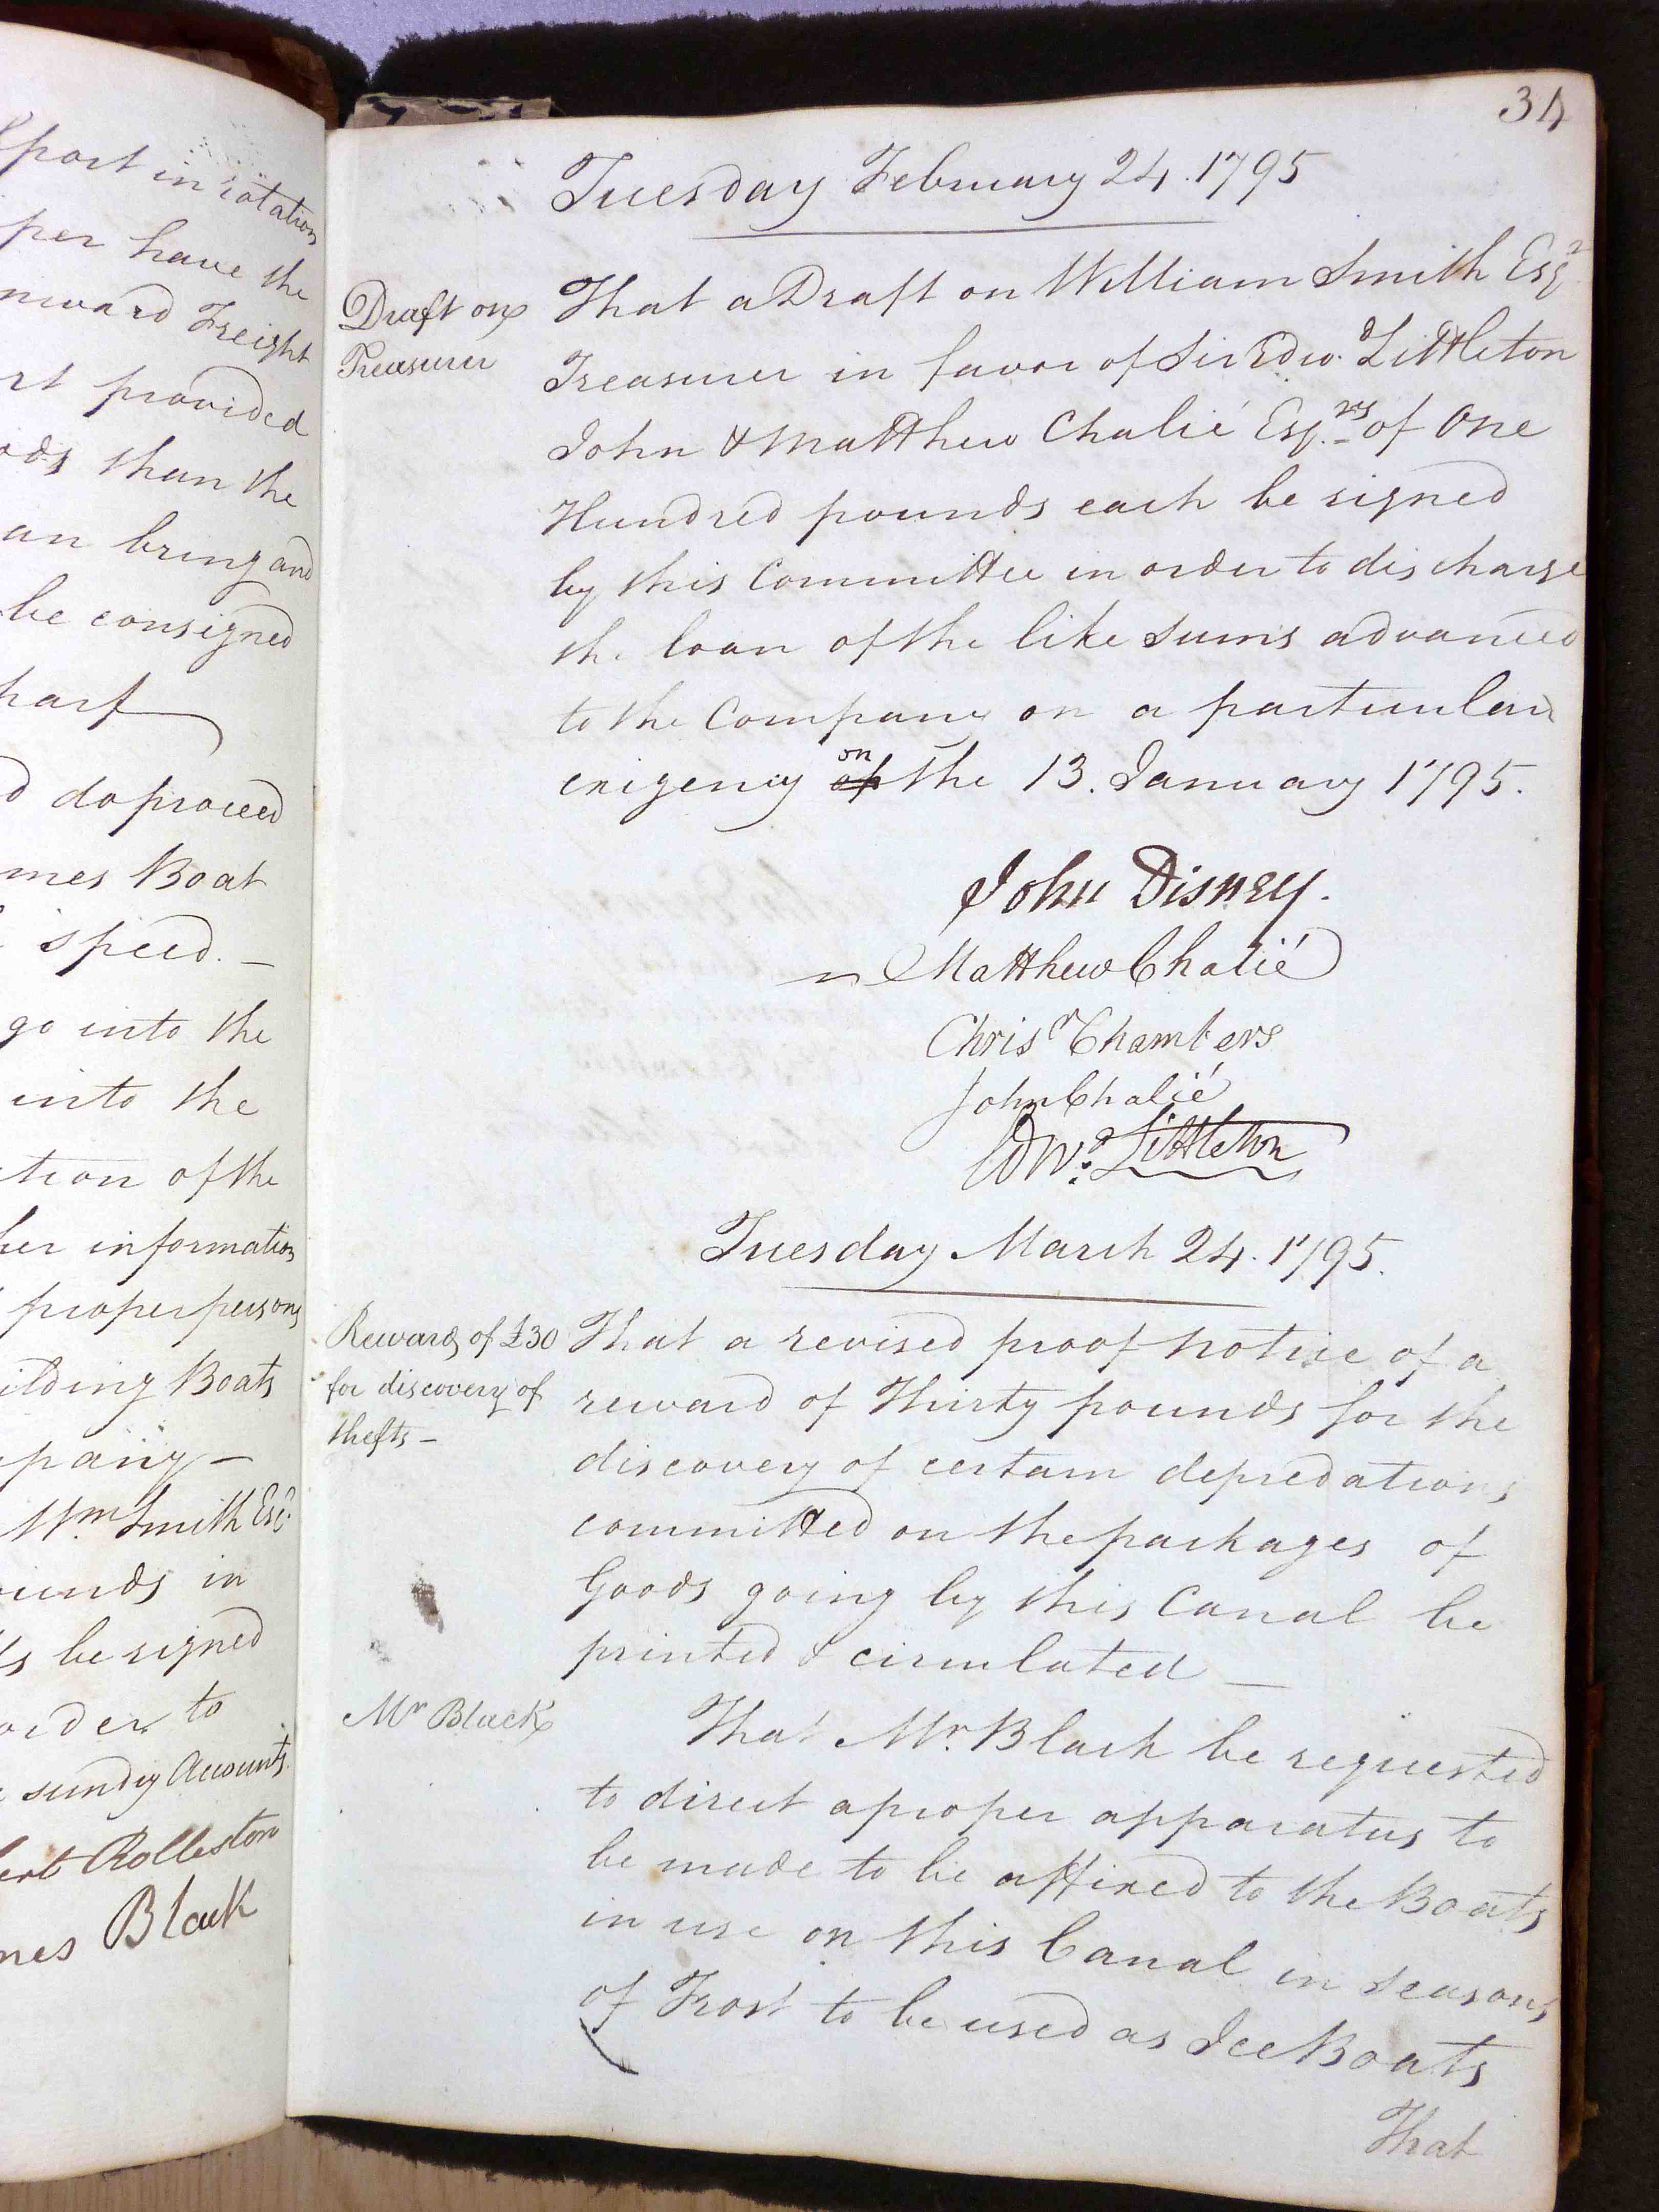 port in rotation
per have the
nward Freight
rt provided
ods than the
an bring and
be consigned
harf
d do proceed
mes Boat
speed. —
go into the
into the
tion of the
her information
proper persons
ilding Boats
pany —
Wm Smith Esqr
ounds in
ts be signed
order to
sundry Accounts.
bert Rolleston
mes Black
34
Tuesday February 24. 1795
Draft on
Treasurer
That a Draft on William Smith Esqr
Treasurer in favor of Sir Edwd. Littleton
John & Matthew Chalié Esqrs. of One
Hundred pounds each be signed
by this Committee in order to discharge
the loan of the like Sums advanced
to the Company on a particular
exigency of on the 13. January 1795.
John Disney.
Matthew Chalié
Chrisr Chambers
John Chalié
Edwd. Littleton
Tuesday March 24. 1795.
Reward of £30
for discovery of
thefts —
That a revised proof notice of a
reward of Thirty pounds for the
discovery of certain depredations
committed on the packages of
Goods going by this Canal be
printed & circulated —
Mr Black
That Mr. Black be requested
to direct a proper apparatus to
be made to be affixed to the Boats
in use on this Canal in seasons
of Frost to be used as Ice Boats
That